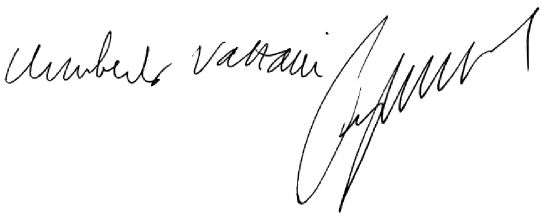 Umberto Vattani